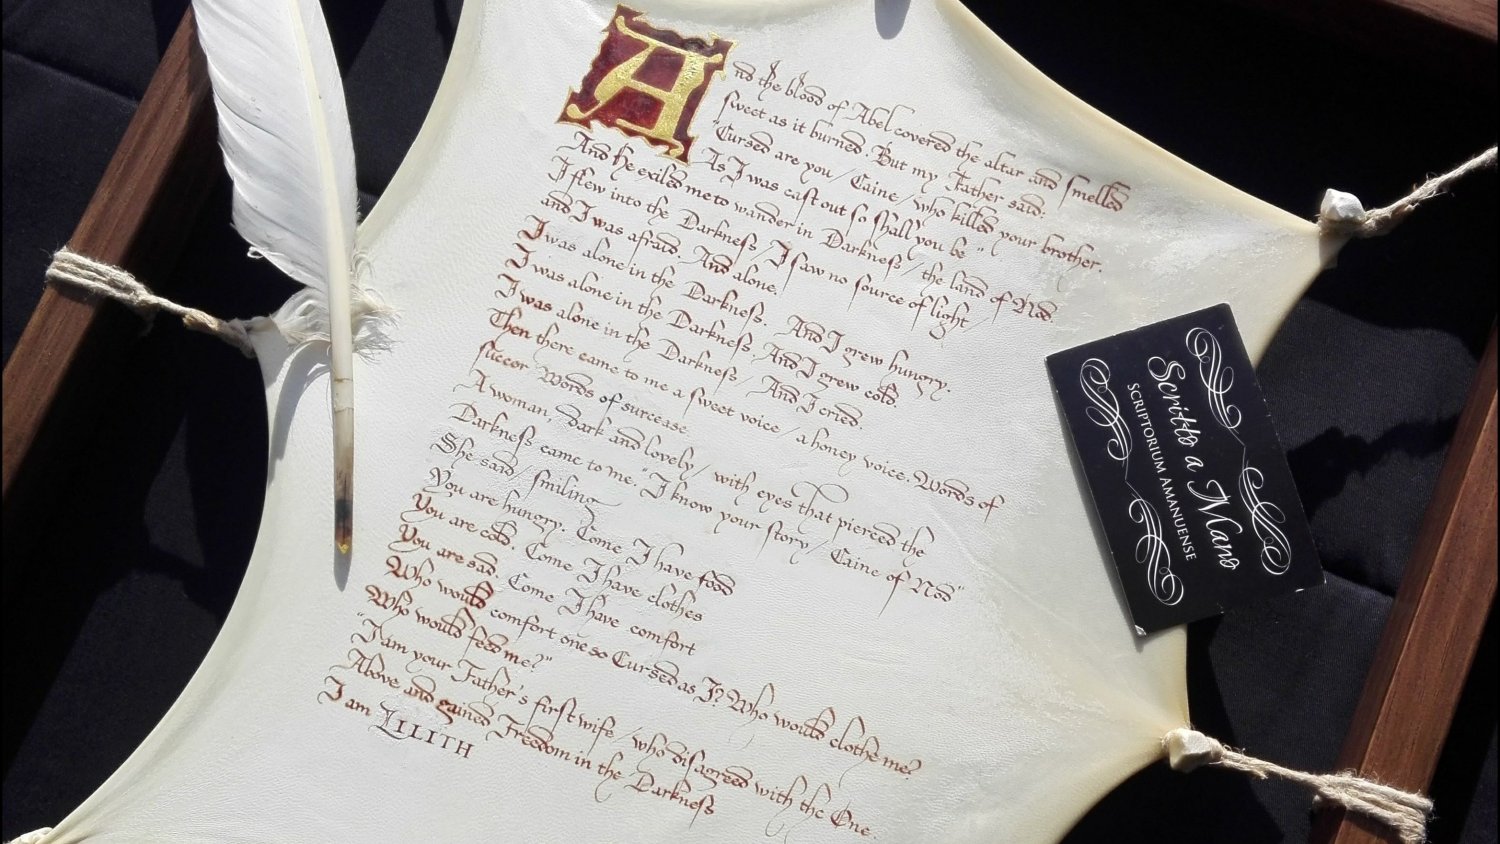 And the blood of Abel covered the altar and smelled
sweet as it burned. But my Father said:
"Cursed are you / Caine / who killed your brother.
As I was cast out so shall you be"
And He exiled me to wander in Darkness / the land of Nod.
I flew into the Darkness / I saw no source of light /
and I was afraid. And alone.
I was alone in the Darkness. And I grew hungry.
I was alone in the Darkness. And I grew cold.
I was alone in the Darkness / And I cried.
Then there came to me a sweet voice / a honey voice. Words of
succor. Words of surcease.
A woman, dark and lovely / with eyes that pierced the
Darkness came to me. "I know your story / Caine of Nod"
She said / smiling
You are hungry. Come I have food
You are cold. Come I have clothes
You are sad. Come I have comfort
Who would comfort one so Cursed as I? Who would clothe me?
"Who would feed me?"
I am your Father's first wife / who disagreed with the One
Above and gained Freedom in the Darkness
I am LILITH
Scritto a Mano
SCRIPTORIUM AMANUENSE